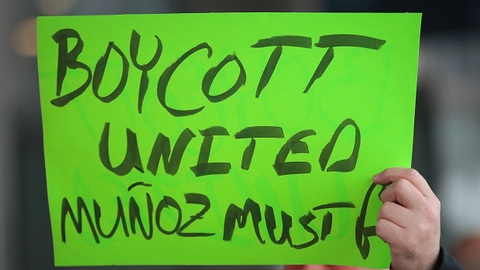 BOYCOTT
UNITED
MUÑOZ MUST